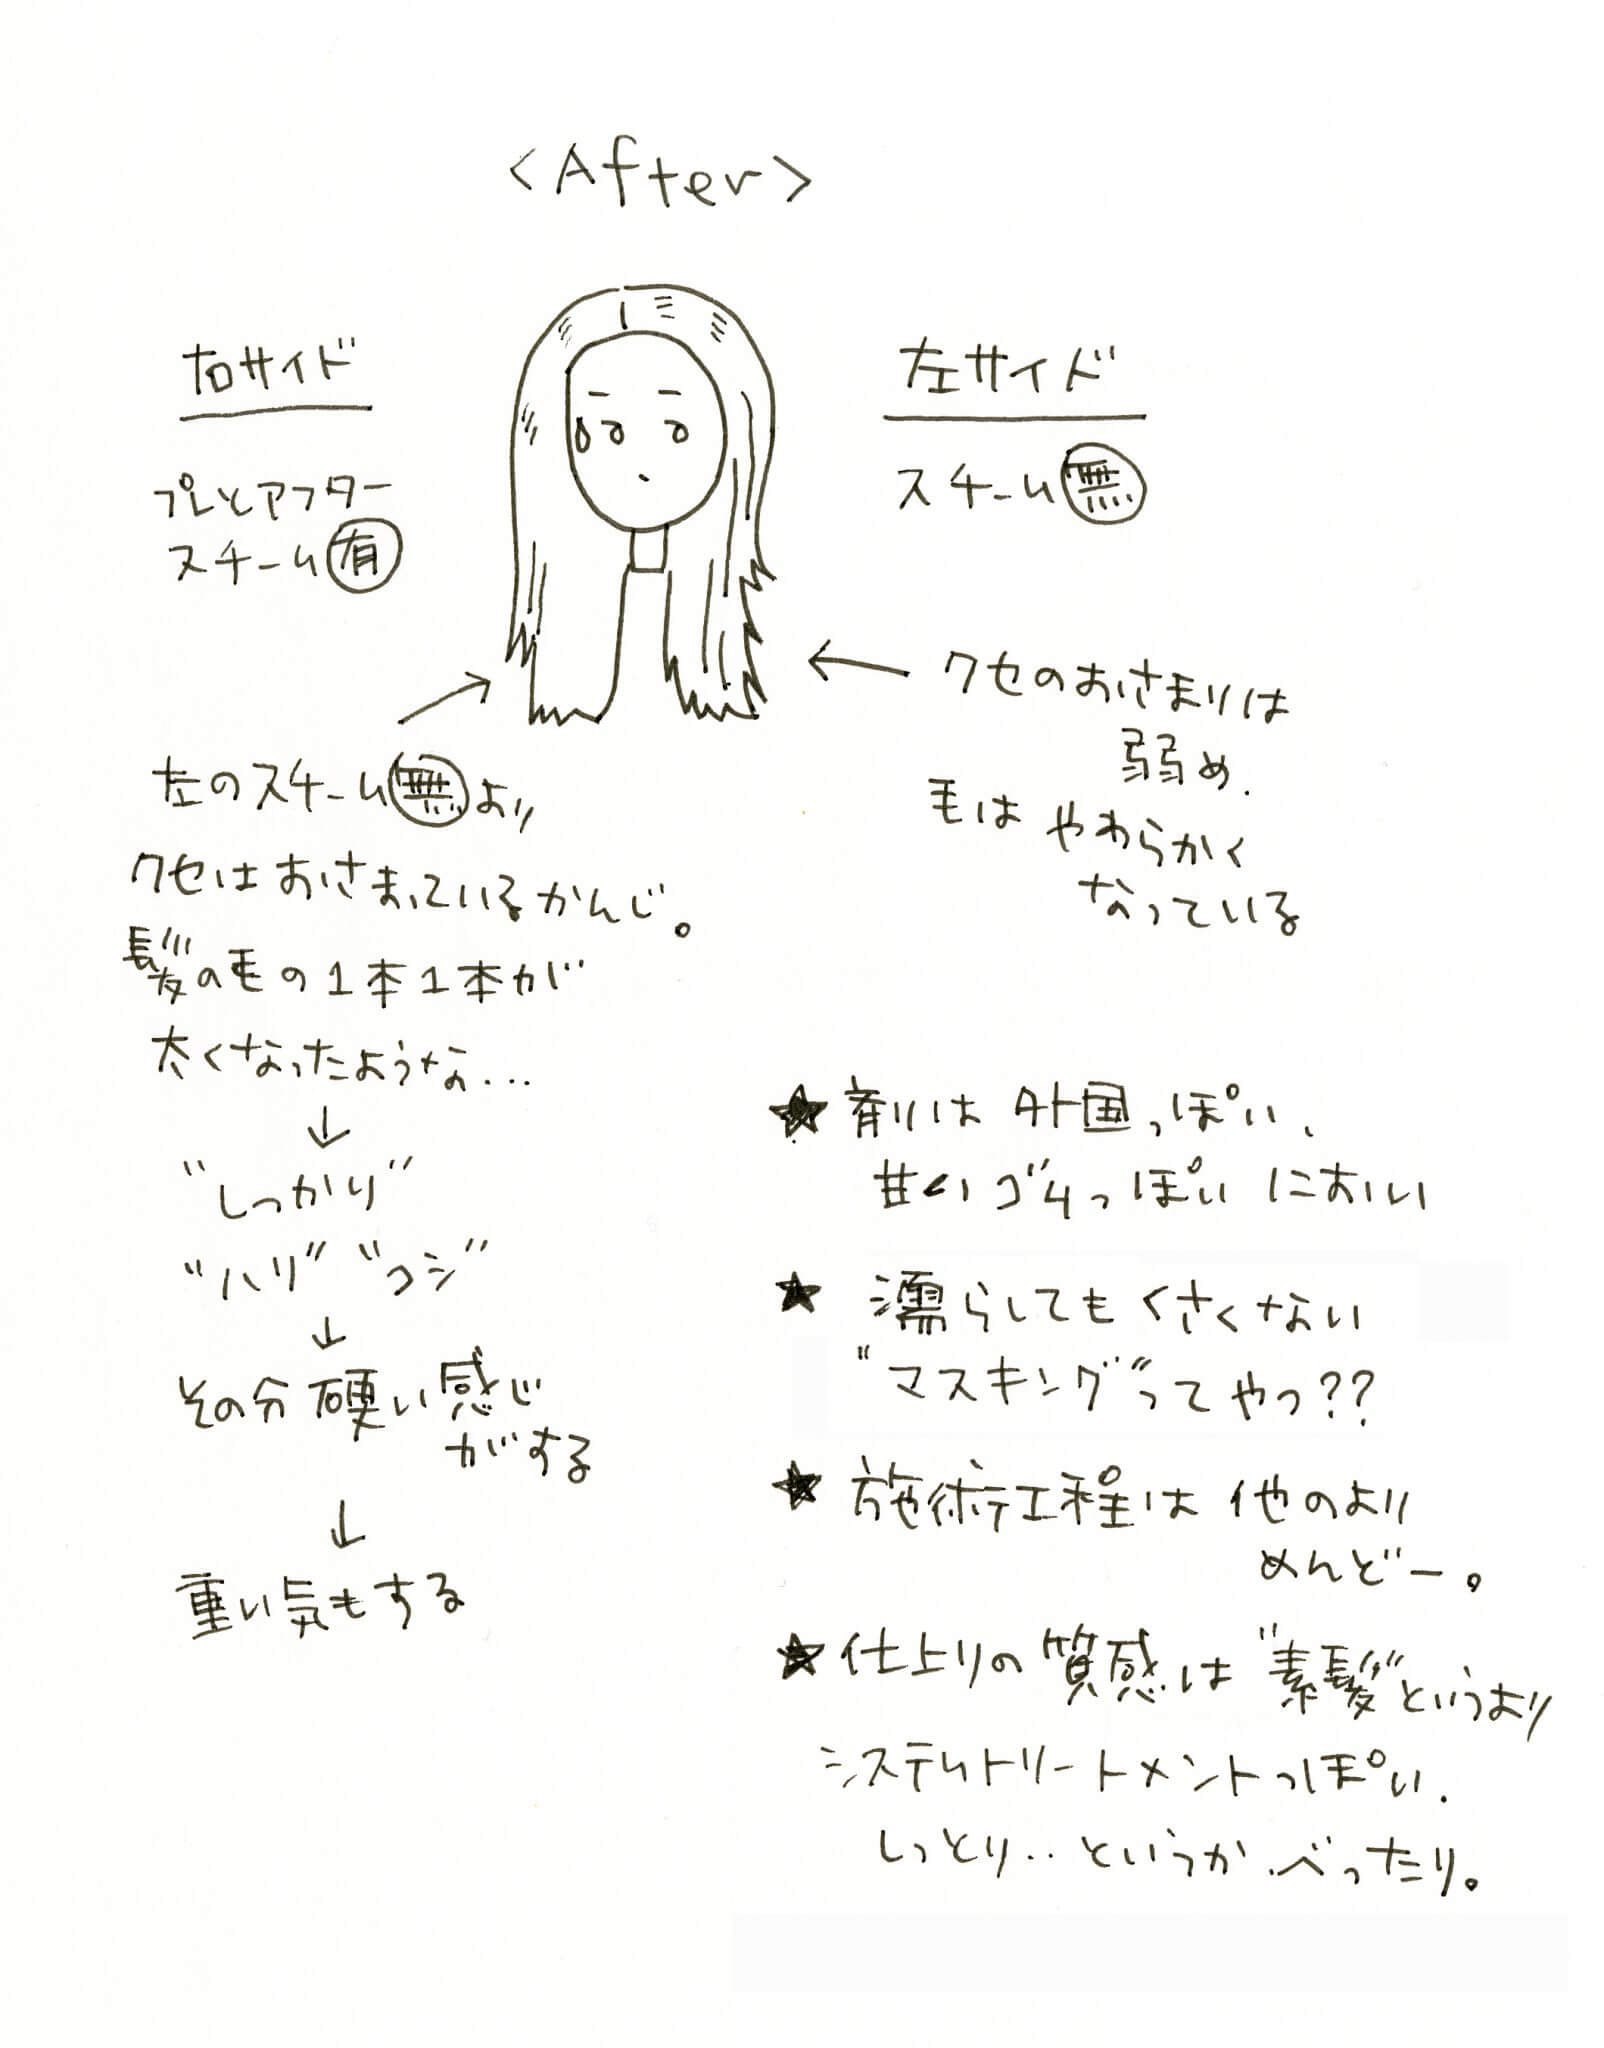 <After>
右サイド
プレとアフター
スチーム有
左のスチーム無より
クセはおさまっているかんじ。
髪の毛の1本1本が
太くなったような...
↓
"しっかり"
"ハリ" "コシ"
↓
その分 硬い感じ
がする
↓
重い気もする
左サイド
スチーム無
← クセのおさまりは
弱め.
毛は やわらかく
なっている
★ 剤は 外国っぽい、
甘い ゴムっぽい におい
★ 濡らしても くさくない
"マスキング"ってやつ??
★ 施術工程は 他のより
めんどー。
★ 仕上りの 質感は "素髪"というより
システムトリートメントっぽい.
しっとり‥というか.べったり。